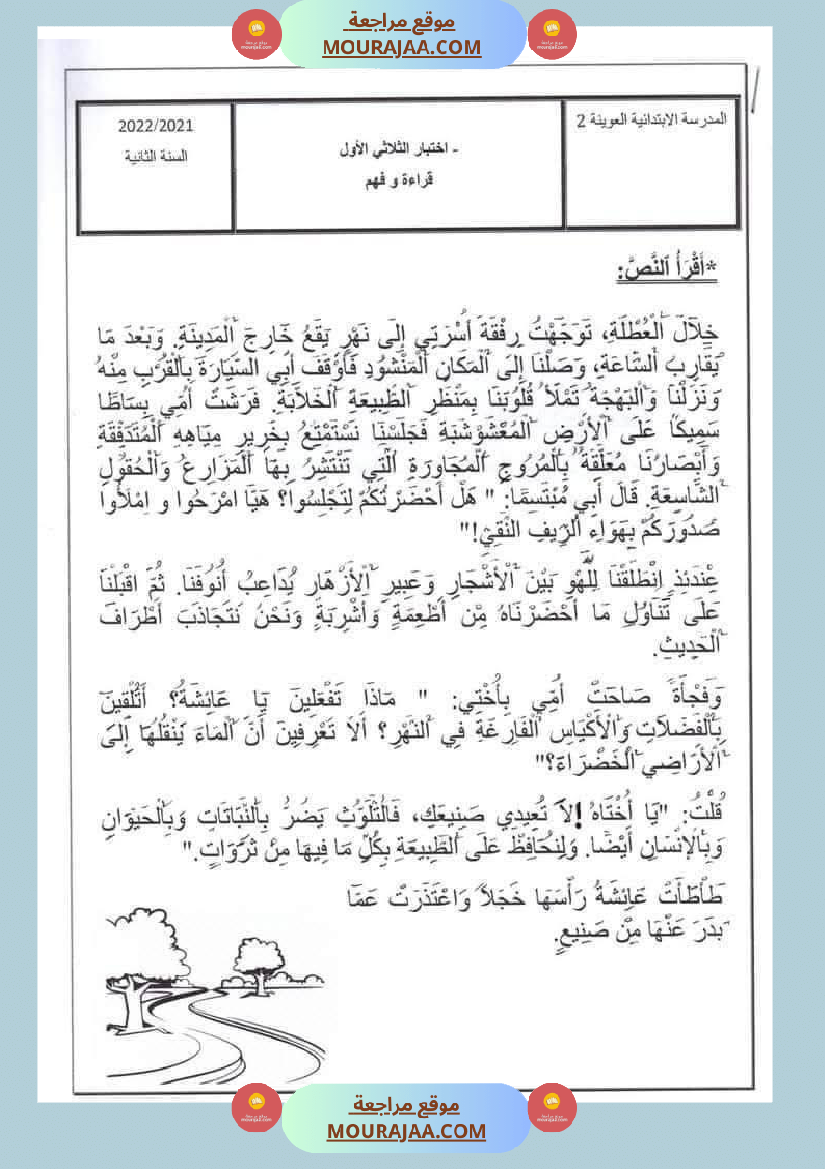 موقع مراجعة
MOURAJAA.COM
المدرسة الابتدائية العوينة 2
- اختبار الثلاثي الأول
قراءة و فهم
2022/2021
السنة الثانية
*أَقْرَأُ النَّصَّ:
خِلَالَ الْعُطْلَةِ، تَوَجَّهْتُ رِفْقَةَ أُسْرَتِي إِلَى نَهْرٍ يَقَعُ خَارِجَ الْمَدِينَةِ. وَبَعْدَ مَا
يُقَارِبُ السَّاعَةِ، وَصَلْنَا إِلَى الْمَكَانِ الْمَنْشُودِ فَأَوْقَفَ أَبِي السَّيَّارَةَ بِالْقُرْبِ مِنْهُ
وَنَزَلْنَا وَالْبَهْجَةُ تَمْلَأُ قُلُوبَنَا بِمَنْظَرِ الطَّبِيعَةِ الْخَلَّابَةِ. فَرَشَتْ أُمِّي بِسَاطًا
سَمِيكًا عَلَى الْأَرْضِ الْمُعْشَوْشَبَةِ فَجَلَسْنَا نَسْتَمْتِعُ بِخَرِيرِ مِيَاهِهِ الْمُتَدَفِّقَةِ
وَأَبْصَارُنَا مُعَلَّقَةٌ بِالْمُرُوجِ الْمُجَاوِرَةِ الَّتِي تَنْتَشِرُ بِهَا الْمَزَارِعُ وَالْحُقُولُ
الشَّاسِعَةِ. قَالَ أَبِي مُبْتَسِمًا: " هَلْ أَحْضَرْتُكُمْ لِتَجْلِسُوا؟ هَيَّا امْرَحُوا و امْلَأُوا
صُدُورَكُمْ بِهَوَاءِ الرِّيفِ النَّقِيِّ!"
عِنْدَئِذٍ اِنْطَلَقْنَا لِلَّهْوِ بَيْنَ الْأَشْجَارِ وَعَبِيرِ الْأَزْهَارِ يُدَاعِبُ أُنُوفَنَا. ثُمَّ اقْبَلْنَا
عَلَى تَنَاوُلِ مَا أَحْضَرْنَاهُ مِنْ أَطْعِمَةٍ وَأَشْرِبَةٍ وَنَحْنُ نَتَجَاذَبُ أَطْرَافَ
الْحَدِيثِ.
وَفَجْأَةً صَاحَتْ أُمِّي بِأُخْتِي: " مَاذَا تَفْعَلِينَ يَا عَائِشَةُ؟ أَتُلْقِينَ
بِالْفَضَلَاتِ وَالْأَكْيَاسِ الْفَارِغَةِ فِي النَّهْرِ؟ أَلَا تَعْرِفِينَ أَنَّ الْمَاءَ يَنْقُلُهَا إِلَى
الْأَرَاضِي الْخَضْرَاءَ؟"
قُلْتُ: "يَا أُخْتَاهُ !لَا تُعِيدِي صَنِيعَكِ، فَالتَّلَوُّثُ يَضُرُّ بِالنَّبَاتَاتِ وَبِالْحَيَوَانِ
وَبِالْإِنْسَانِ أَيْضًا. وَلْنُحَافِظْ عَلَى الطَّبِيعَةِ بِكُلِّ مَا فِيهَا مِنْ ثَرَوَاتٍ."
طَأْطَأَتْ عَائِشَةُ رَأْسَهَا خَجَلًا وَاعْتَذَرَتْ عَمَّا
بَدَرَ عَنْهَا مِنْ صَنِيعٍ.
موقع مراجعة
MOURAJAA.COM